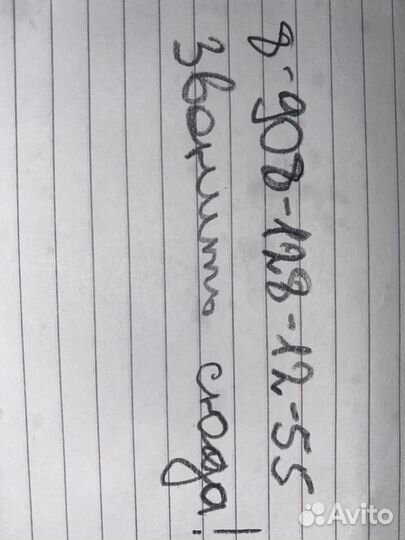 8-908-128-12-55
Звонить сюда!
Avito